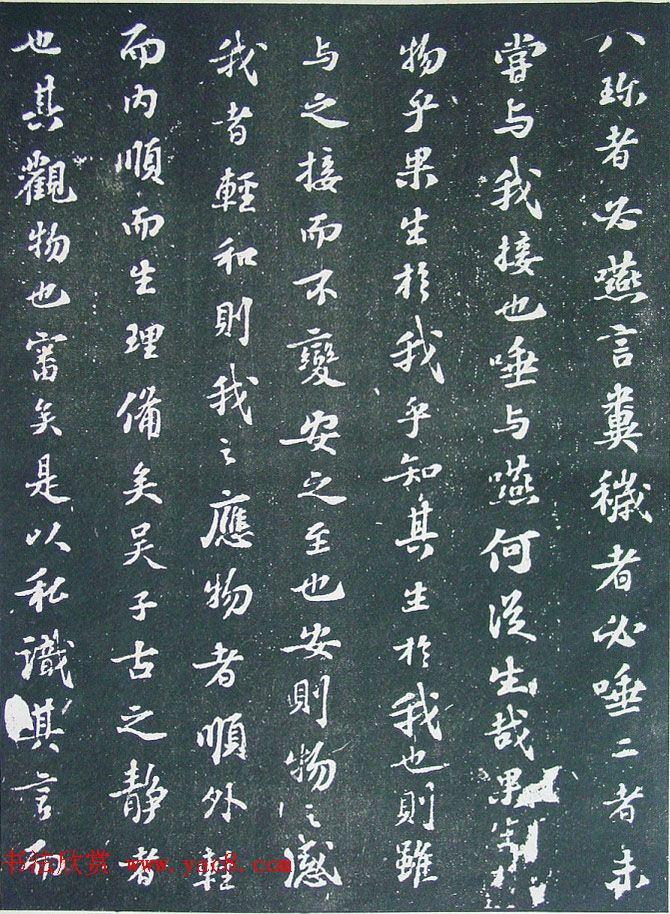 八珎者必嚥言糞穢者必唾二者未
嘗与我接也唾与嚥何從生哉果生於
物乎果生於我乎知其生於我也則雖
与之接而不變安之至也安則物之感
我者輕和則我之應物者順外輕
而内順而生理備矣吴子古之静者
也其觀物也審矣是以私識其言而
书法欣赏 www.yac8.com